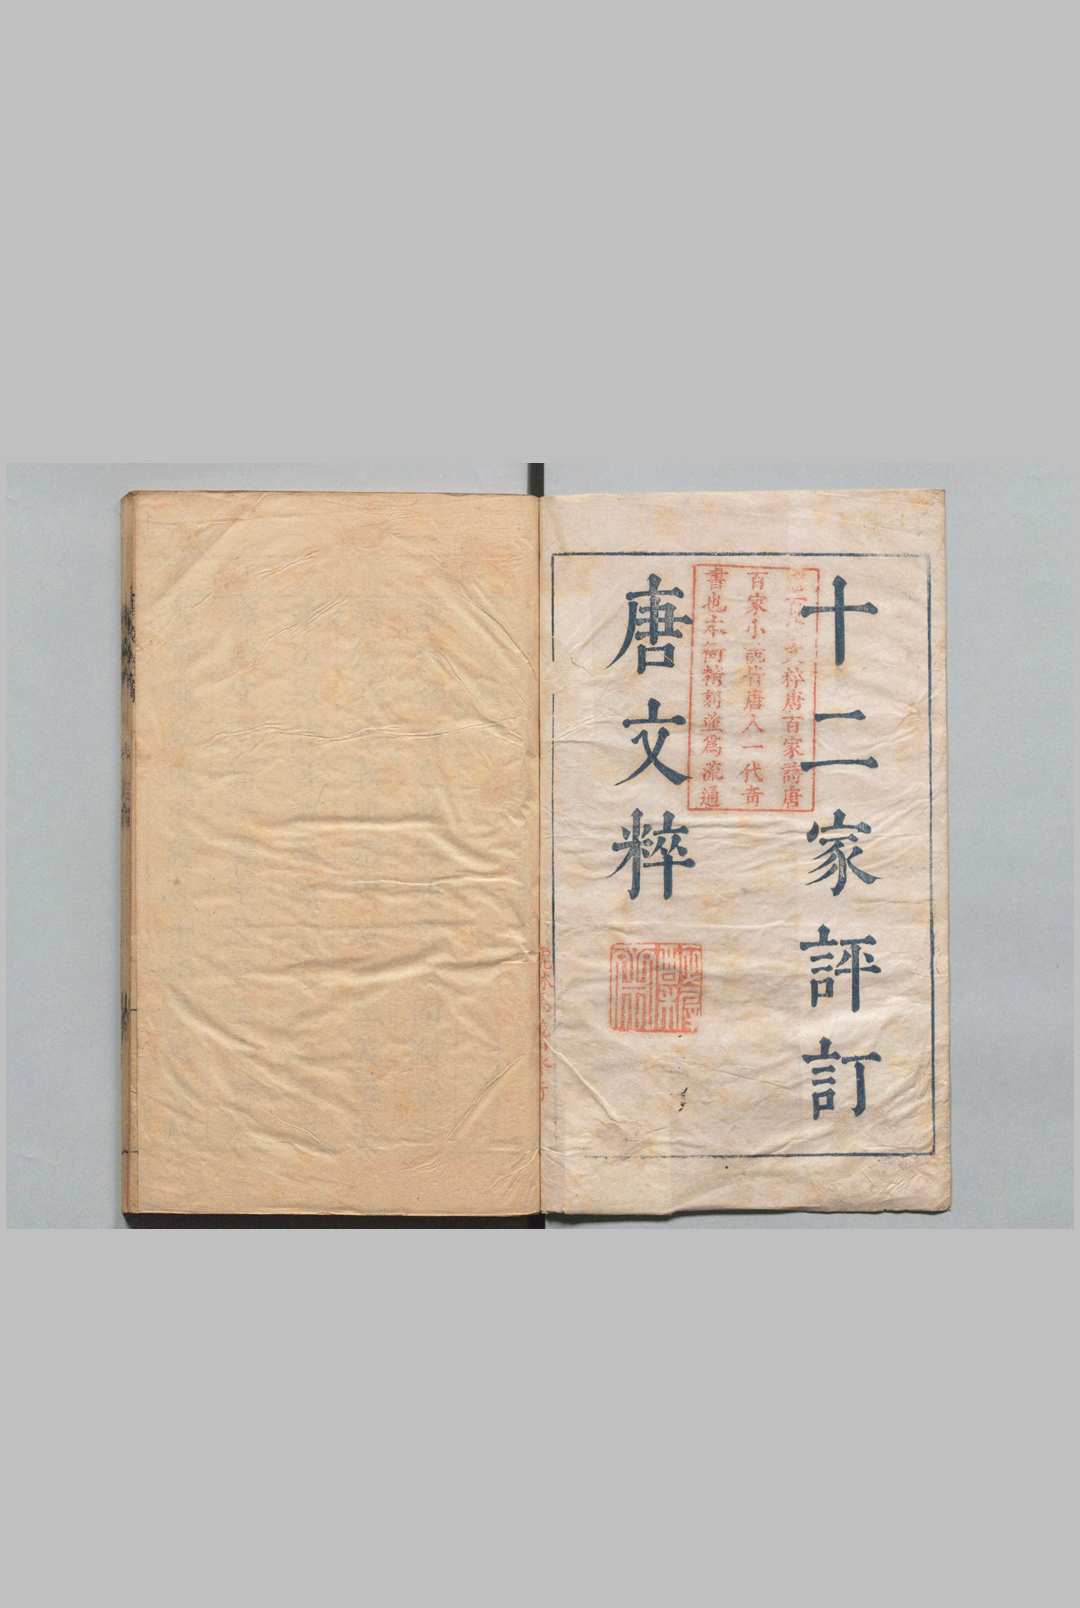 十二家評訂
粹唐百家詩唐
百家小說皆唐人一代奇
書也本衙精刻並爲流通
唐文粹